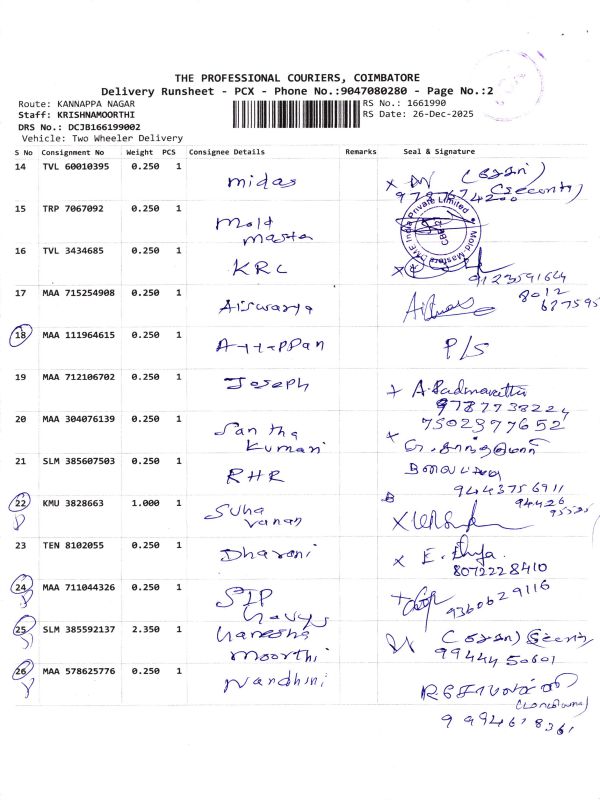 THE PROFESSIONAL COURIERS, COIMBATORE
Delivery Runsheet - PCX - Phone No.:9047080280 - Page No.:2
Route: KANNAPPA NAGAR
RS No.: 1661990
Staff: KRISHNAMOORTHI
RS Date: 26-Dec-2025
DRS No.: DCJB166199002
Vehicle: Two Wheeler Delivery
S No Consignment No Weight PCS Consignee Details Remarks Seal & Signature
14 TVL 60010395 0.250 1 midas
15 TRP 7067092 0.250 1 Mold
Master
16 TVL 3434685 0.250 1 KRC
9123591664
17 MAA 715254908 0.250 1 Aiswarya
8012
18 MAA 111964615 0.250 1 Ayyappan P/S
19 MAA 712106702 0.250 1 Joseph A. Padmavathi
9787738224
20 MAA 304076139 0.250 1 Santha 7502377652
Kumari
21 SLM 385607503 0.250 1 RHR
9443756911
22 KMU 3828663 1.000 1 Suha
vanan
23 TEN 8102055 0.250 1 Dharani
8072228410
24 MAA 711044326 0.250 1 SIP 9360629116
25 SLM 385592137 2.350 1 Ganesha
moorthi 9944450601
26 MAA 578625776 0.250 1 Nandhini